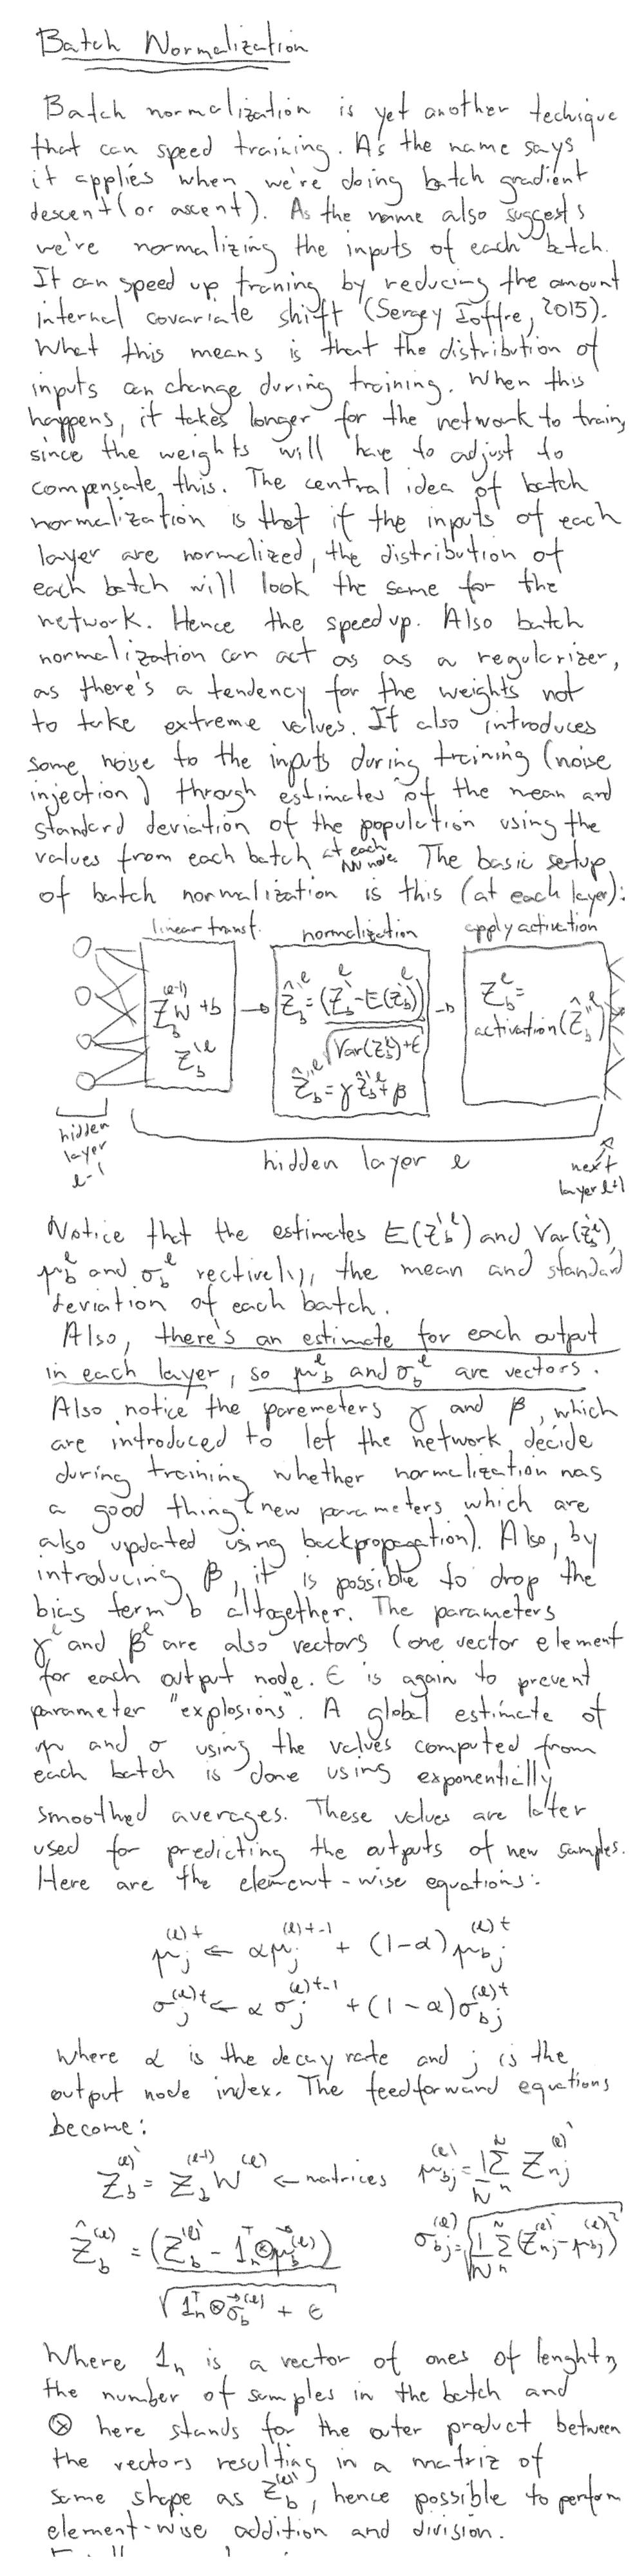 Batch Normalization
Batch normalization is yet another techique
that can speed training. As the name says
it applies when we're doing batch gradient
descent (or ascent). As the name also suggests
we're normalizing the inputs of each batch.
It can speed up traning by reducing the amount
internal covariate shift (Sergey Ioffre, 2015).
What this means is that the distribution of
inputs can change during training. When this
happens, it takes longer for the network to train,
since the weights will have to adjust to
compensate this. The central idea of batch
normalization is that if the inputs of each
layer are normalized, the distribution of
each batch will look the same for the
network. Hence the speed up. Also batch
normalization can act as as a regularizer,
as there's a tendency for the weights not
to take extreme values. It also introduces
some noise to the inputs during training (noise
injection) through estimates of the mean and
standard deviation of the population using the
values from each batch at each NN node. The basic setup
of batch normalization is this (at each layer):
linear transf. normalization apply activation
Z_b^(l-1) W + b → Ẑ'_b^l = (Z'_b^l - E(Z'_b^l)) / √(Var(Z'_b^l) + ε) → Z_b^l =
Z'_b^l Ẑ''_b^l = γ Ẑ'_b^l + β activation(Ẑ''_b^l)
hidden layer l-1
hidden layer l
next layer l+1
Notice that the estimates E(Z'_b^l) and Var(Z'_b^l),
μ_b^l and σ_b^l rectively, the mean and standard
deviation of each batch.
Also, there's an estimate for each output
in each layer, so μ_b^l and σ_b^l are vectors.
Also notice the paremeters γ and β, which
are introduced to let the network decide
during training whether normalization was
a good thing (new parameters which are
also updated using backpropagation). Also, by
introducing β, it is possible to drop the
bias term b altogether. The parameters
γ^l and β^l are also vectors (one vector element
for each output node. ε is again to prevent
parameter "explosions". A global estimate of
μ and σ using the values computed from
each batch is done using exponentially
smoothed averages. These values are later
used for predicting the outputs of new samples.
Here are the element-wise equations:
μ_j^(l)t ← αμ_j^(l)t-1 + (1-α) μ_bj^(l)t
σ_j^(l)t ← α σ_j^(l)t-1 + (1-α) σ_bj^(l)t
where α is the decay rate and j is the
output node index. The feedforward equations
become:
Z_b^(l)' = Z_b^(l-1) W^(l) ← matrices μ_bj^(l) = 1/N Σ_n^N Z_nj^(l)'
Ẑ_b^(l) = (Z_b^(l)' - 1_n^T ⊗ μ_b^(l)) / √(1_n^T ⊗ σ_b^(l) + ε) σ_bj^(l) = √(1/N Σ_n^N (Z_nj^(l)' - μ_bj^(l))^2)
Where 1_n is a vector of ones of lenght n
the number of samples in the batch and
⊗ here stands for the outer product between
the vectors resulting in a matriz of
same shape as Z_b^(l)', hence possible to perfom
element-wise addition and division.